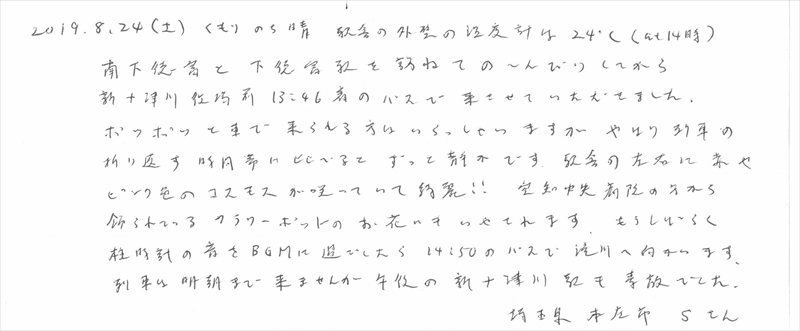 2019.8.24(土) くもりのち晴 駅舎の外壁の温度計は24℃(at14時)
南下徳富と下徳富駅を訪ねてのーんびりしてから
新十津川役場前13:46着のバスで来させていただきました.
ポツポツと車で来られる方はいらっしゃいますが やはり列車の
折り返す時間帯にくらべると ずっと静かです. 駅舎の左右に赤や
ピンク色のコスモスが咲っていて綺麗!! 空知中央病院の方から
飾られている フラワーポットのお花にもいやされます. もうしばらく
柱時計の音をBGMに過ごしたら 14:50のバスで滝川へ向かいます.
列車は明朝まで来ませんが 午後の新十津川駅も素敵でした.
埼玉県 本庄市 Sさん